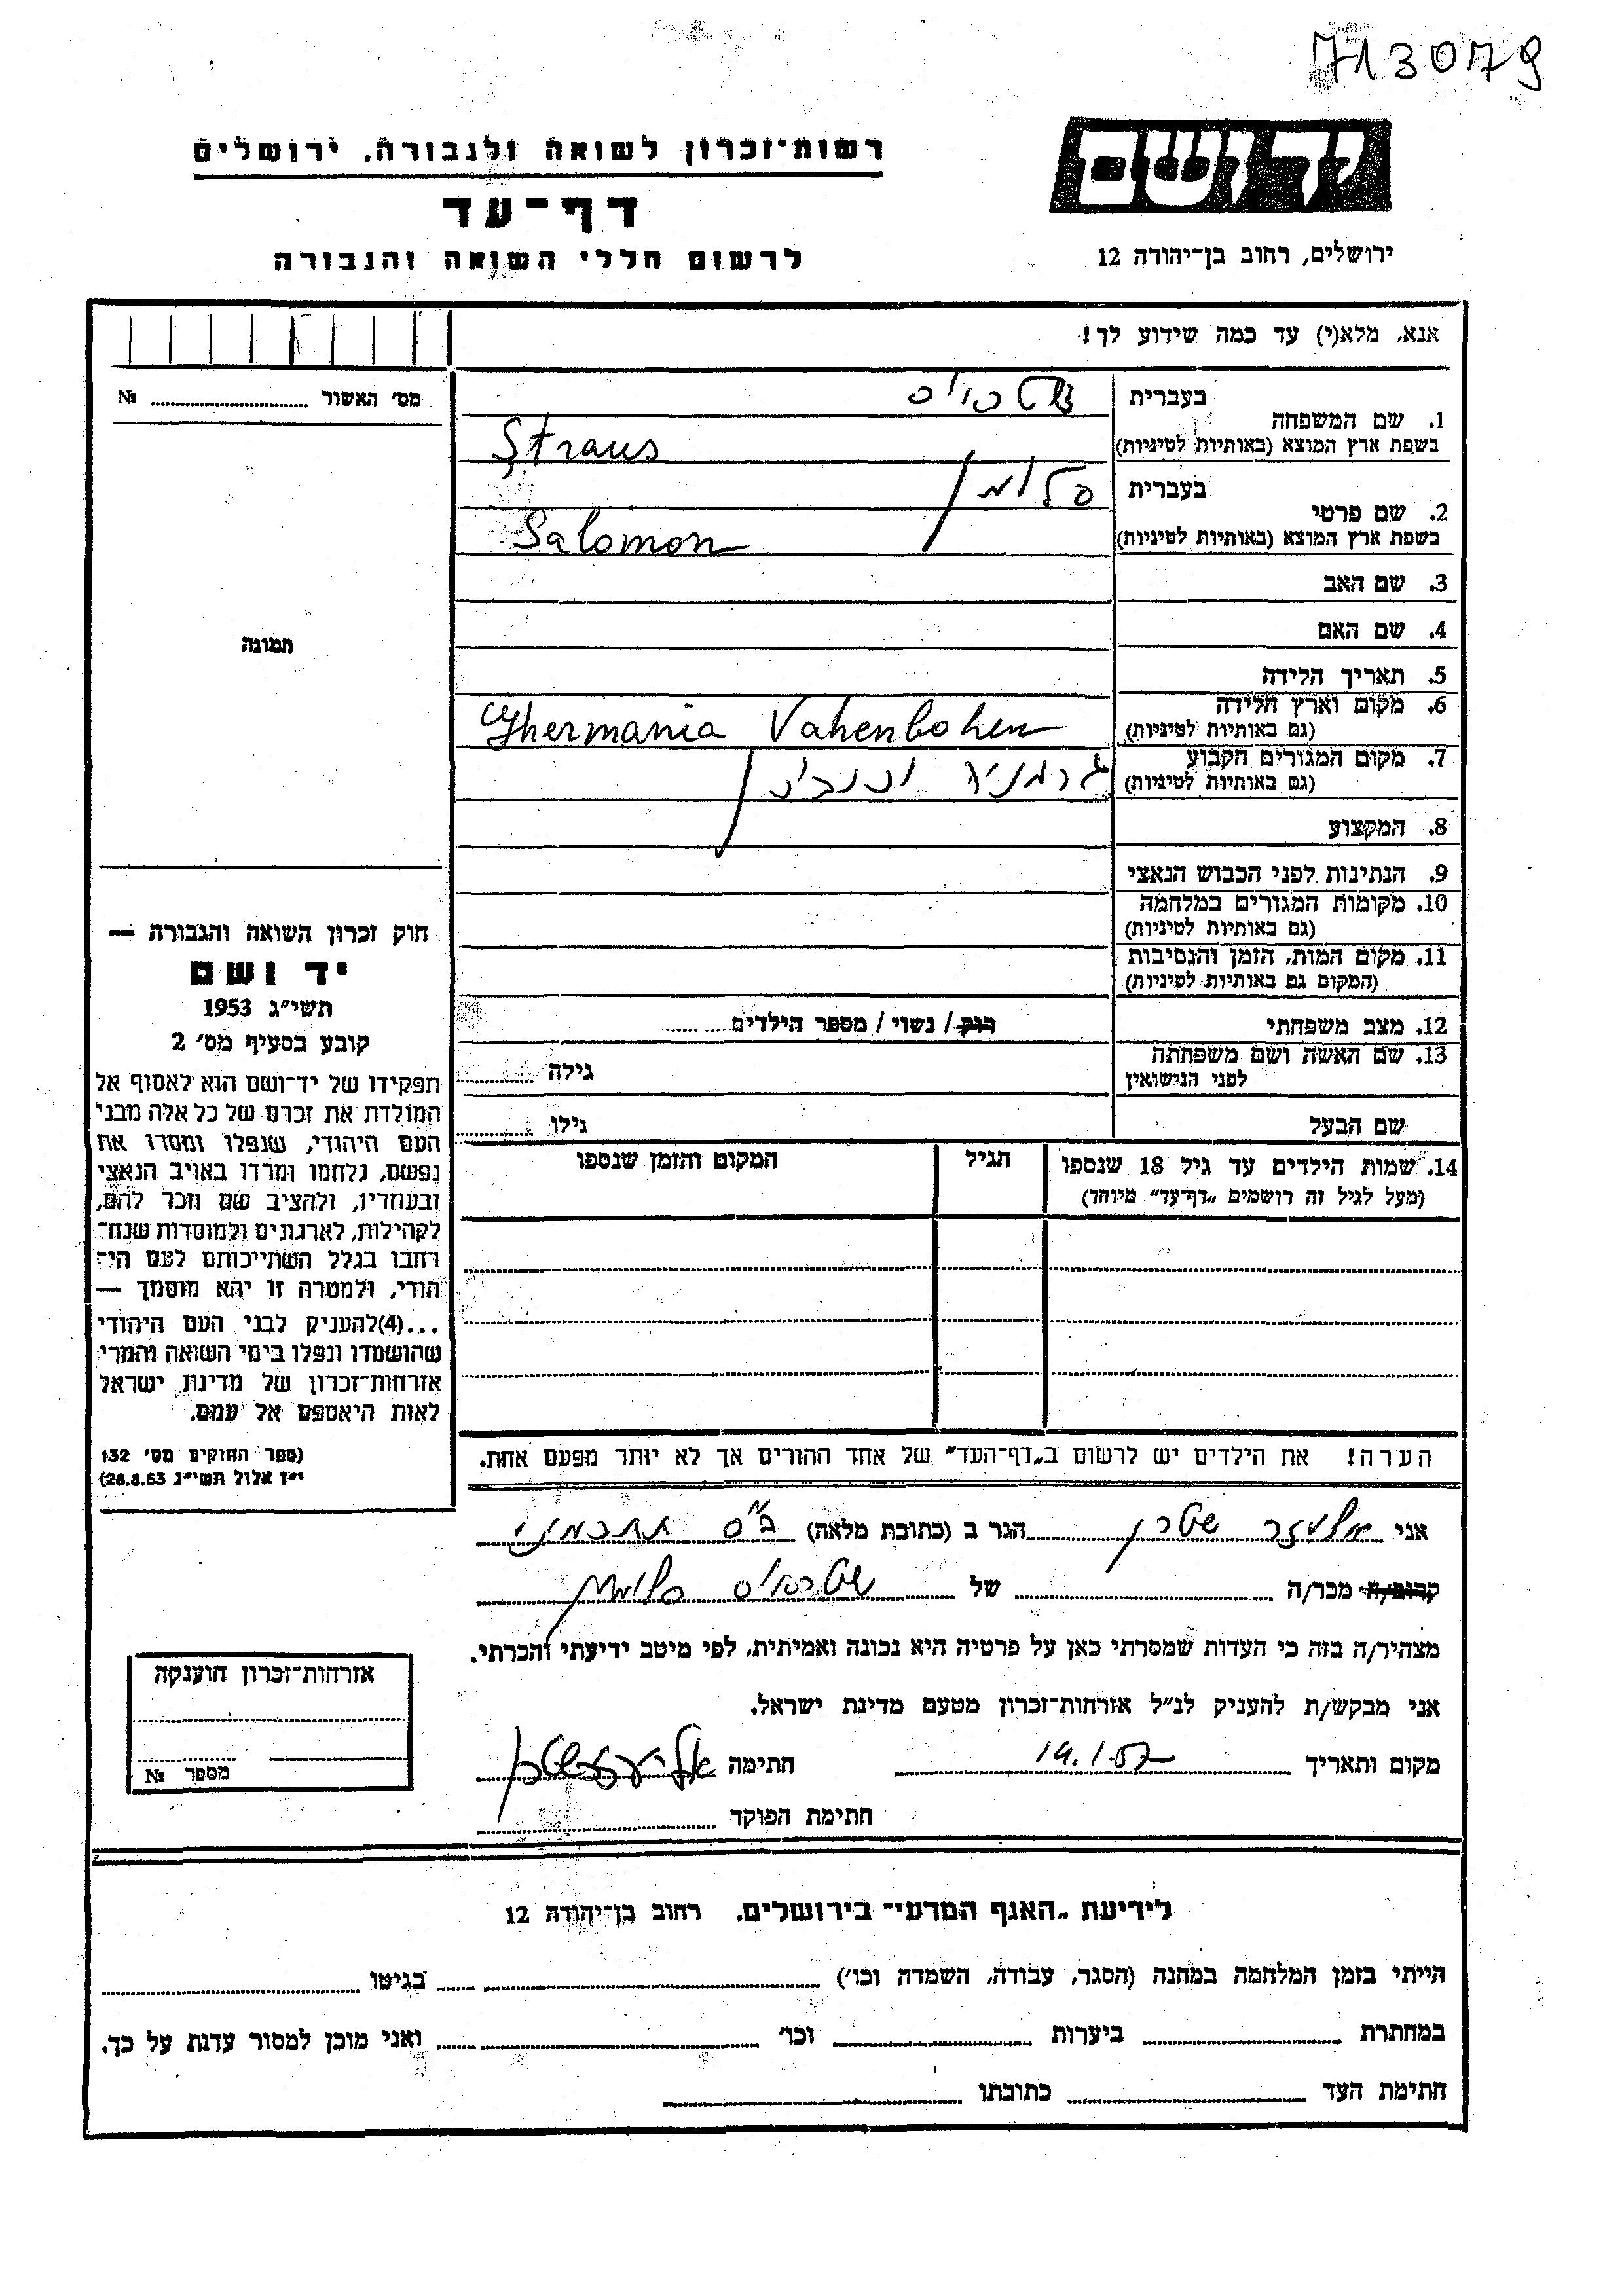 713079
יד ושם
רשות־זכרון לשואה ולגבורה, ירושלים
דף־עד
לרשום חללי השואה והגבורה
ירושלים, רחוב בן־יהודה 12
אנא, מלא(י) עד כמה שידוע לך!
מס׳ האשור № 
בעברית
1. שם המשפחה
בשפת ארץ המוצא (באותיות לטיניות)
Straus
בעברית סלומון
2. שם פרטי
בשפת ארץ המוצא (באותיות לטיניות)
Salomon
3. שם האב
4. שם האם
תמונה
5. תאריך הלידה
6. מקום וארץ הלידה
(גם באותיות לטיניות)
Ghermania Vahenbohen
7. מקום המגורים הקבוע
(גם באותיות לטיניות)
גרמניה
8. המקצוע
9. הנתינות לפני הכבוש הנאצי
10. מקומות המגורים במלחמה
(גם באותיות לטיניות)
11. מקום המות, הזמן והנסיבות
(המקום גם באותיות לטיניות)
12. מצב משפחתי רוק / נשוי / מספר הילדים
13. שם האשה ושם משפחתה
לפני הנישואין
גילה
שם הבעל גילו
14. שמות הילדים עד גיל 18 שנספו
(מעל לגיל זה רושמים „דף־עד״ מיוחד)
הגיל
המקום והזמן שנספו
חוק זכרון השואה והגבורה —
יד ושם
תשי״ג 1953
קובע בסעיף מס׳ 2
תפקידו של יד־ושם הוא לאסוף אל
המולדת את זכרם של כל אלה מבני
העם היהודי, שנפלו ומסרו את
נפשם, נלחמו ומרדו באויב הנאצי
ובעוזריו, ולהציב שם וזכר להם,
לקהילות, לארגונים ולמוסדות שנח־
רחבו בגלל השתייכותם לעם הי־
הודי, ולמטרה זו יהא מוסמך —
...(4)להעניק לבני העם היהודי
שהושמדו ונפלו בימי השואה והמרי
אזרחות־זכרון של מדינת ישראל
לאות היאספם אל עמם.
(ספר החוקים מס׳ 132
י״ז אלול תשי״ג 26.8.53)
הערה! את הילדים יש לרשום ב„דף־העד״ של אחד ההורים אך לא יותר מפעם אחת.
אני אליעזר שטרן הגר ב (כתובת מלאה) בי״ס תחכמוני
קרוב/ה מכר/ה של שטראוס סלומון
מצהיר/ה בזה כי העדות שמסרתי כאן על פרטיה היא נכונה ואמיתית, לפי מיטב ידיעתי והכרתי.
אני מבקש/ת להעניק לנ״ל אזרחות־זכרון מטעם מדינת ישראל.
מקום ותאריך 19.1.57 חתימה אליעזר שטרן
חתימת הפוקד
אזרחות־זכרון הוענקה
מספר №
לידיעת „האגף המדעי״ בירושלים, רחוב בן־יהודה 12
הייתי בזמן המלחמה במחנה (הסגר, עבודה, השמדה וכו׳) בגיטו
במחתרת ביערות וכו׳ ואני מוכן למסור עדות על כך.
חתימת העד כתובתו